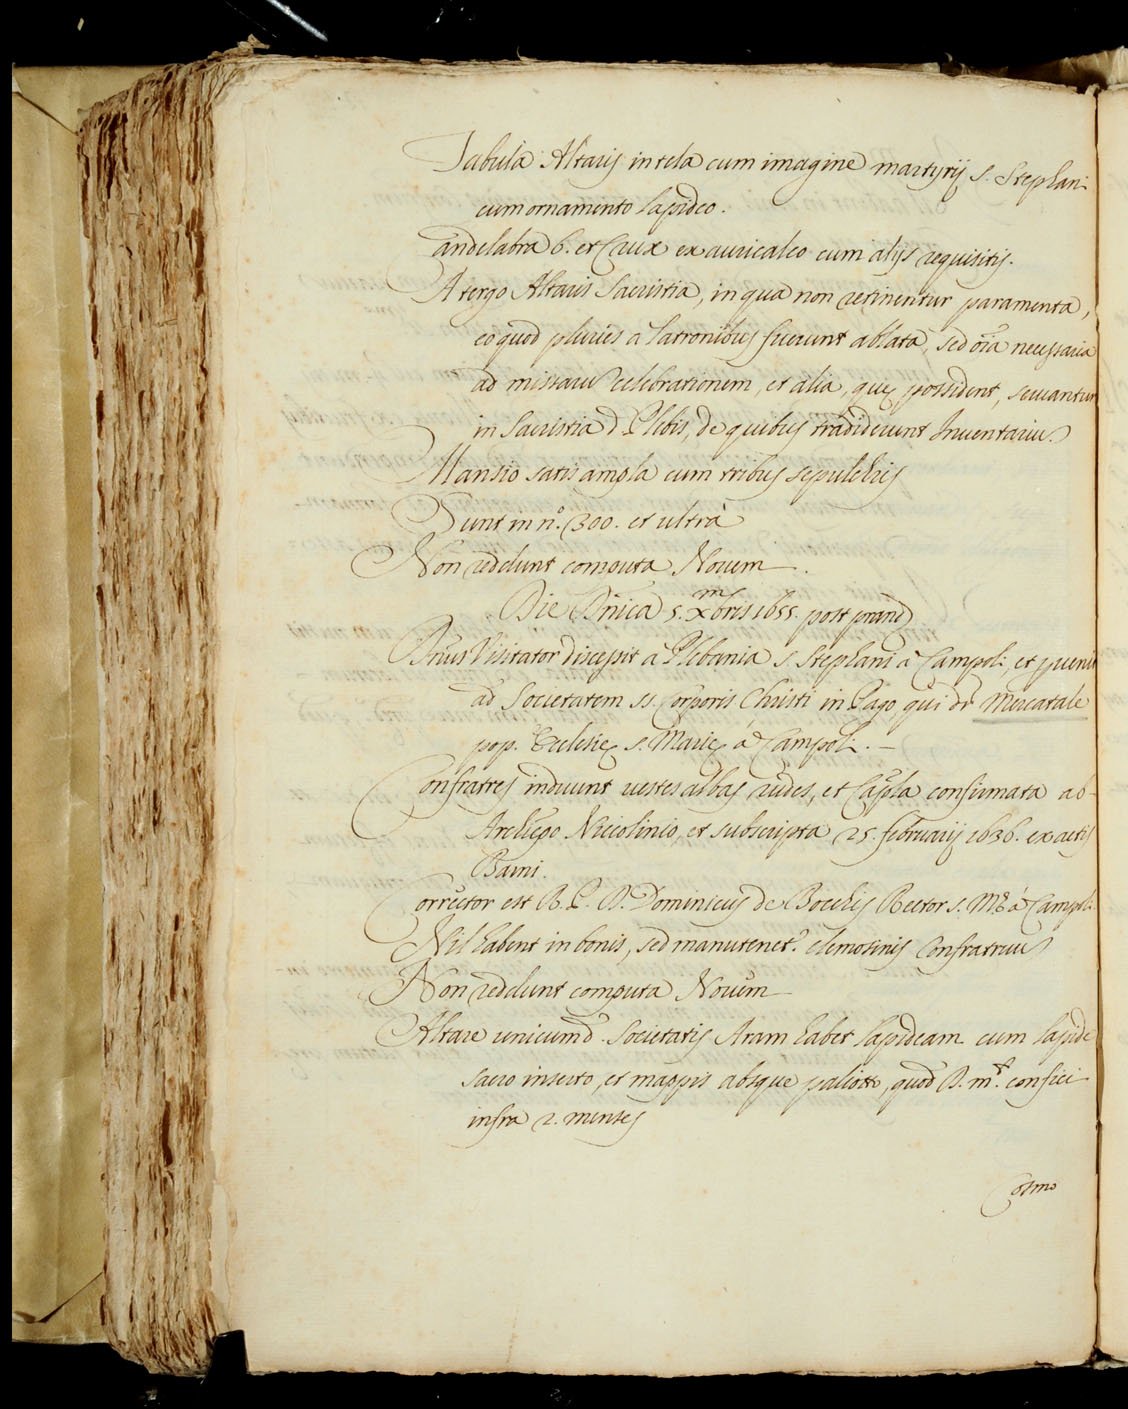 Tabula Altaris in tela cum imagine martyrij S. Stephani
cum ornamento lapideo.
Candelabra 6. et Crux ex auricalco cum alijs requisitis.
A tergo Altaris Sacristia, in qua non retinentur paramenta,
eo quod pluries a latronibus fuerunt ablata, sed oĩa necessaria
ad missaru celebrationem, et alia, quę possident, seruantur
in Sacristia d. Plebis, de quibus tradiderunt Inuentariu.
Mansio satis ampla cum tribus sepulchris
Sunt in n.º 300. et ultrà
Non reddunt computa Nouem.
Die Dñica 5. Xmbris 1655. post prand
Dnus Visitator discessit a Plebania S. Stephani à Campoli, et puenit
ad Societatem SS. Corporis Christi in Pago, qui dr Mercatale
pop. Ecclesię S. Marię à Campoli. —
Confratres induunt uestes albas rudes, et Capla confirmata ab
Archiepo Niccolinio, et subscripta 25. februarij 1636. ex actis
Barni.
Corrector est R. P. D. Dominicus de Bocchis Rector S. Mę à Campoli.
Nil habent in bonis, sed manutenet.r elemosinis Confratruu
Non reddunt computa Nouem
Altare unicum d. Societatis Aram habet lapideam cum lapide
sacro inserto, et mappis absque paliotto, quod D. m.t confici
infra 2. menses
Cosmo